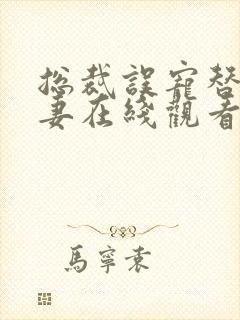 总裁誤寵替
妻在綫觀看
馬寧袁